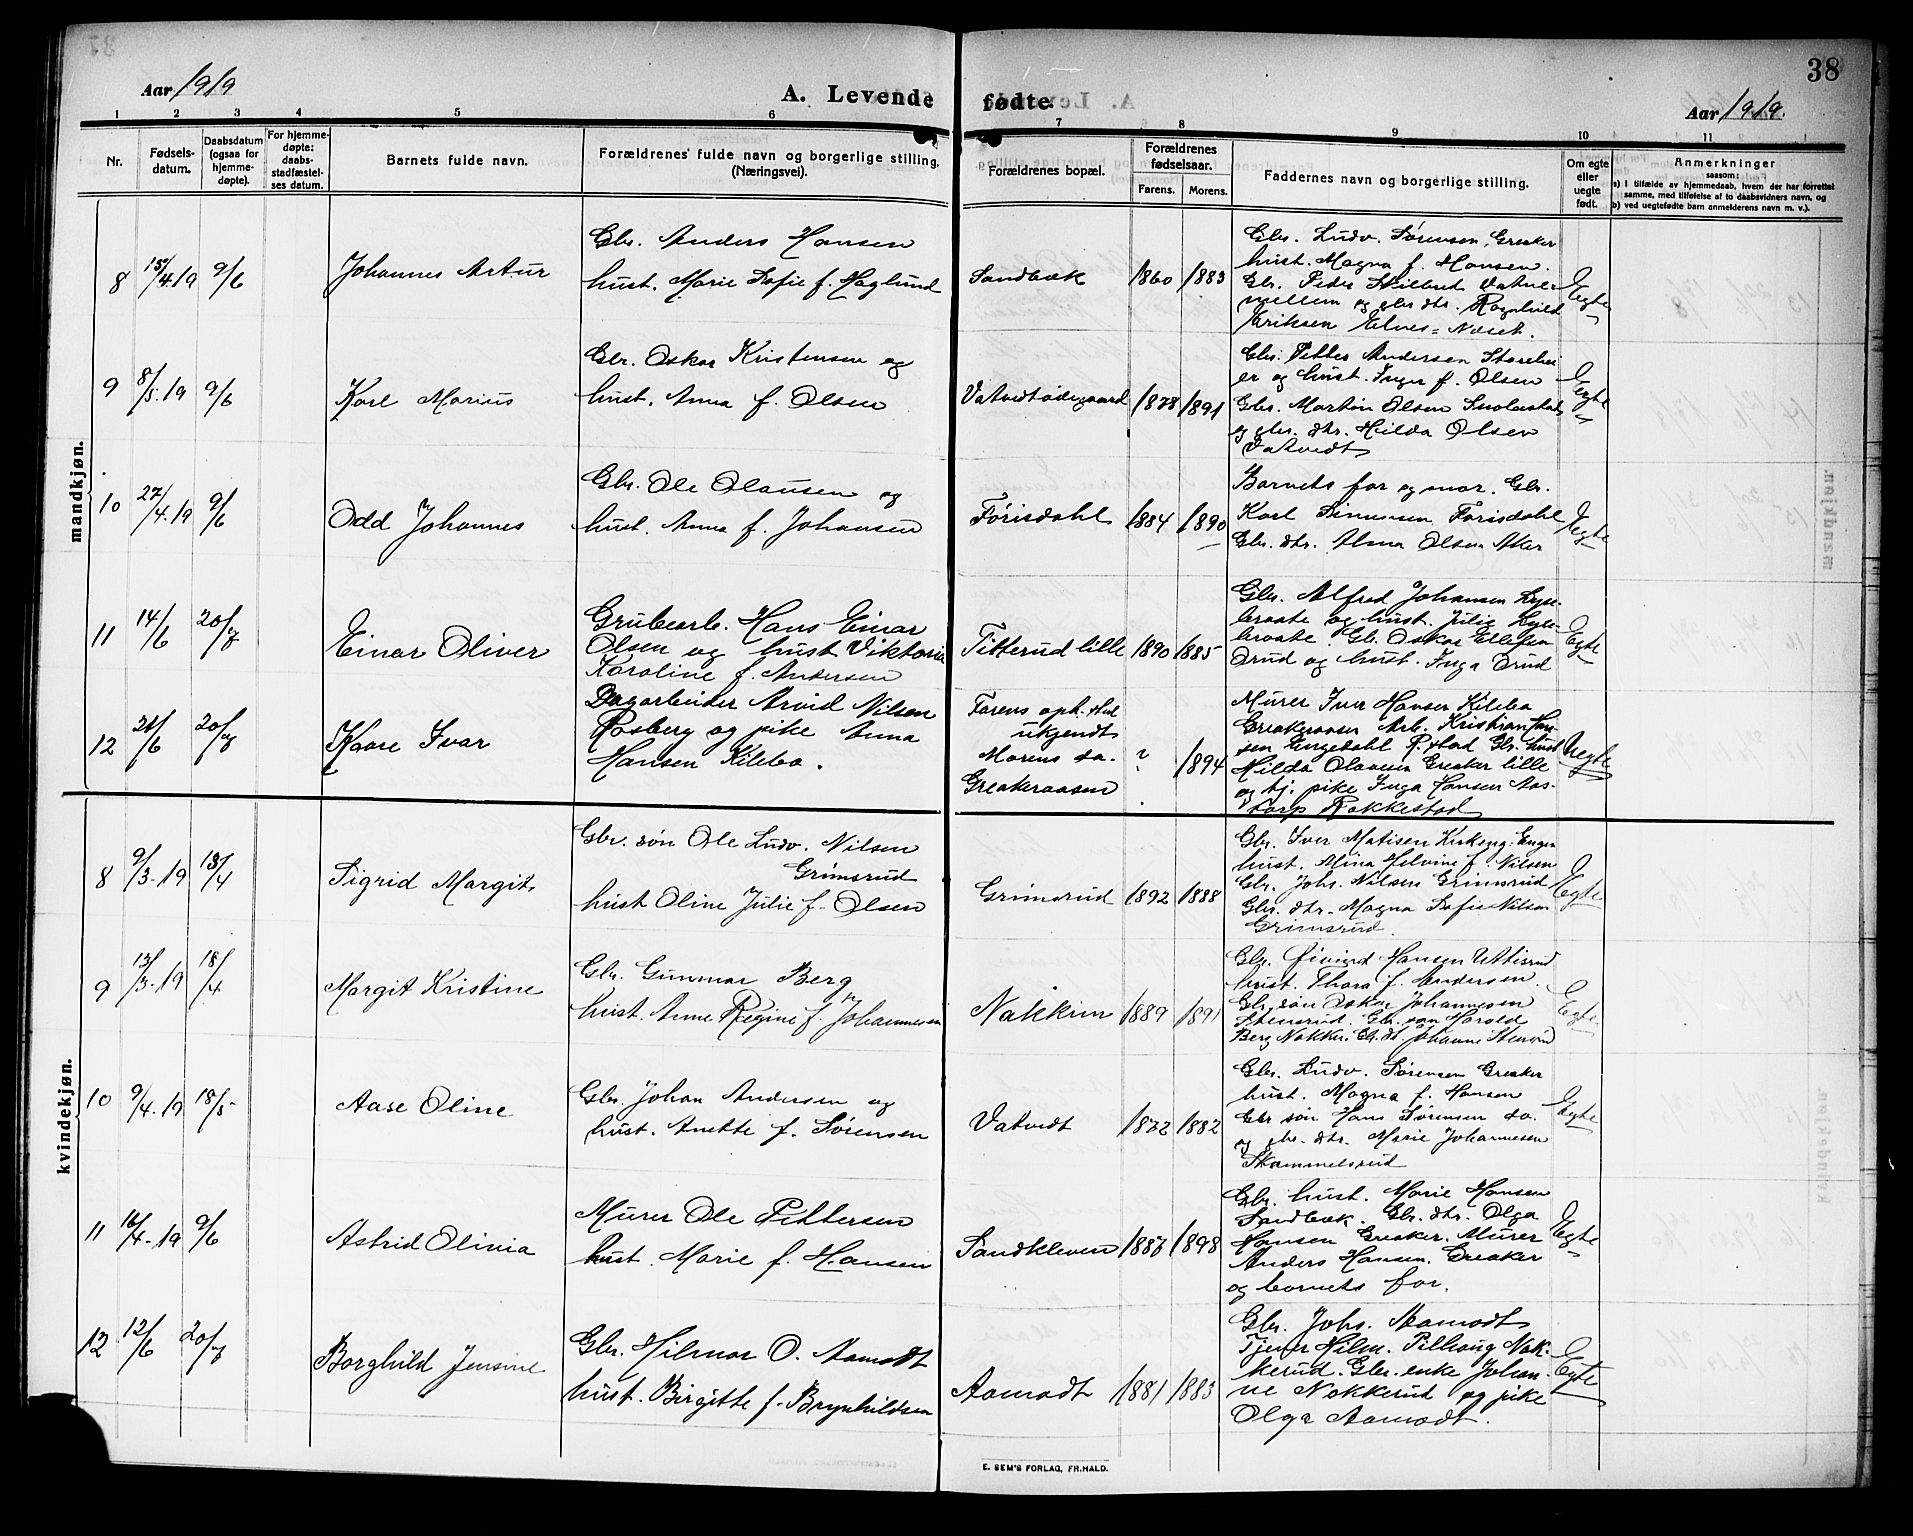 38
Aar 1919
A. Levende fødte.
Aar 1919.
1 2 3 4 5 6 7 8 9 10 11
Nr.
Fødsels-
datum.
Daabsdatum
(ogsaa for
hjemme-
døpte).
For hjemme-
døpte:
daabs-
stadfæstel-
ses datum.
Barnets fulde navn.
Forældrenes fulde navn og borgerlige stilling.
(Næringsvei).
Forældrenes bopæl.
Forældrenes
fødselsaar.
Farens. Morens.
Faddernes navn og borgerlige stilling.
Om egte
eller
uegte
født.
Anmerkninger
saasom:
a) I tilfælde av hjemmedaab, hvem der har forrettet
samme, med tilføielse af to daabsvidners navn, og
b) ved uegtefødte barn anmelderens navn m. v.).
mandkjøn.
8 15/4.19 9/6
Johannes Artur
Gbr. Anders Hansen
hust. Marie Sofie f. Haglund
Sandbæk 1860 1883
Gbr. Ludv. Sørensen, Greaker
hust. Magna f. Hansen.
Gbr. Peder Skilbred Vatvet
mellem og gbr. dtr. Ragnhild
Eriksen Elves=Næset.
Egte
9 8/5.19 9/6
Karl Marius
Gbr. Oskar Kristensen og
hust. Anna f. Olsen
Vatvedtødegaard 1878 1891
Gbr. Petter Andersen Storehei
er og hust. Inger f. Olsen
Gbr. Martin Olsen
og gbr. dtr. Hilda Olsen
Vatvedt
Egte
10 27/4.19 9/6
Odd Johannes
Gbr. Ole Olausen og
hust. Anna f. Johansen
Førisdahl 1884 1890
Barnets far og mor. Gbr.
Karl Simensen Førisdahl
Gbr. dtr. Alma Olsen Aker
Egte
11 14/6 20/7
Einar Oliver
Grubearb. Hans Einar
Olsen og hust Viktoria
Karoline f. Andersen
Titterud lille 1890 1885
Gbr. Alfred Johansen Lyse-
braate og hust. Julie Lyse-
braate. Gb. Oskar Ellefsen
Drud og hust. Inga Drud
Egte
12 21/6 20/7
Kaare Ivar
Dagarbeider Arvid Nilsen
Rosberg og pike Anna
Hansen Kilebo.
Farens oph. sted
ukjendt
Morens do.
Greakeraasen
? 1894
Murer Iver Hansen Kilebo
Greakeraasen Arb. Kristian Han-
sen Engedahl R.stad Gbr. hust
Hilda Olavesen Greaker lille
og tj. pike Inga Hansen Aas-
torp Rakkestad
Uegte
kvindekjøn.
8 9/3-19 18/4
Sigrid Margit
Gbr. søn Ole Ludv. Nilsen
Grimsrud
hust Oline Julie f. Olsen
Grimsrud 1892 1888
Gbr. Iver Matisen Kirkeng-Engen
hust. Mina Helvine f. Nilsen
Gbr. Johs. Nilsen Grimsrud
Gbr. dtr. Magna Sofie Nilsen
Grimsrud.
Egte
9 13/3-19 18/4
Margit Kristine
Gbr. Gunnar Berg
hust. Anne Regine f. Johannesen
Nakkim 1889 1891
Gbr. Øivind Hansen Uttisrud
hust. Thora f. Andersen.
Gbr. søn Oskar Johannesen
Stensrud. Gbr. søn Harald
Berg Nakkim. Gb. dt. Johanne Stensrud
Egte
10 9/4-19 18/5
Aase Oline
Gbr. Johan Andersen og
hust. Anette f. Sørensen
Vatvedt 1872 1882
Gbr. Ludv. Sørensen Greaker
hust. Magna f. Hansen
Gbr søn Hans Sørensen do.
og gbr. dtr. Marie Johannesen
Skammelsrud
Egte
11 16/4-19 9/6
Astrid Olivia
Murer Ole Pettersen
hust. Marie f. Hansen
Sandkleven 1887 1898
Gbr. hust. Marie Hansen
Sandbæk. Gbr. dtr. Olga
Hansen Greaker. Murer
Anders Hansen. Greaker
og barnets far.
Egte
12 12/6 20/7
Borghild Jensine
Gbr. Hilmar O. Aamodt
hust. Birgitte f. Brynhildsen
Aamodt 1881 1883
Gbr. Johs. Aamodt
Tjener Hilm. Pilhaug Nak-
kerud. Gbr. enke Johan-
ne Nakkerud og pike
Olga Aamodt.
Egte
E. SEM'S FORLAG, FR.HALD.